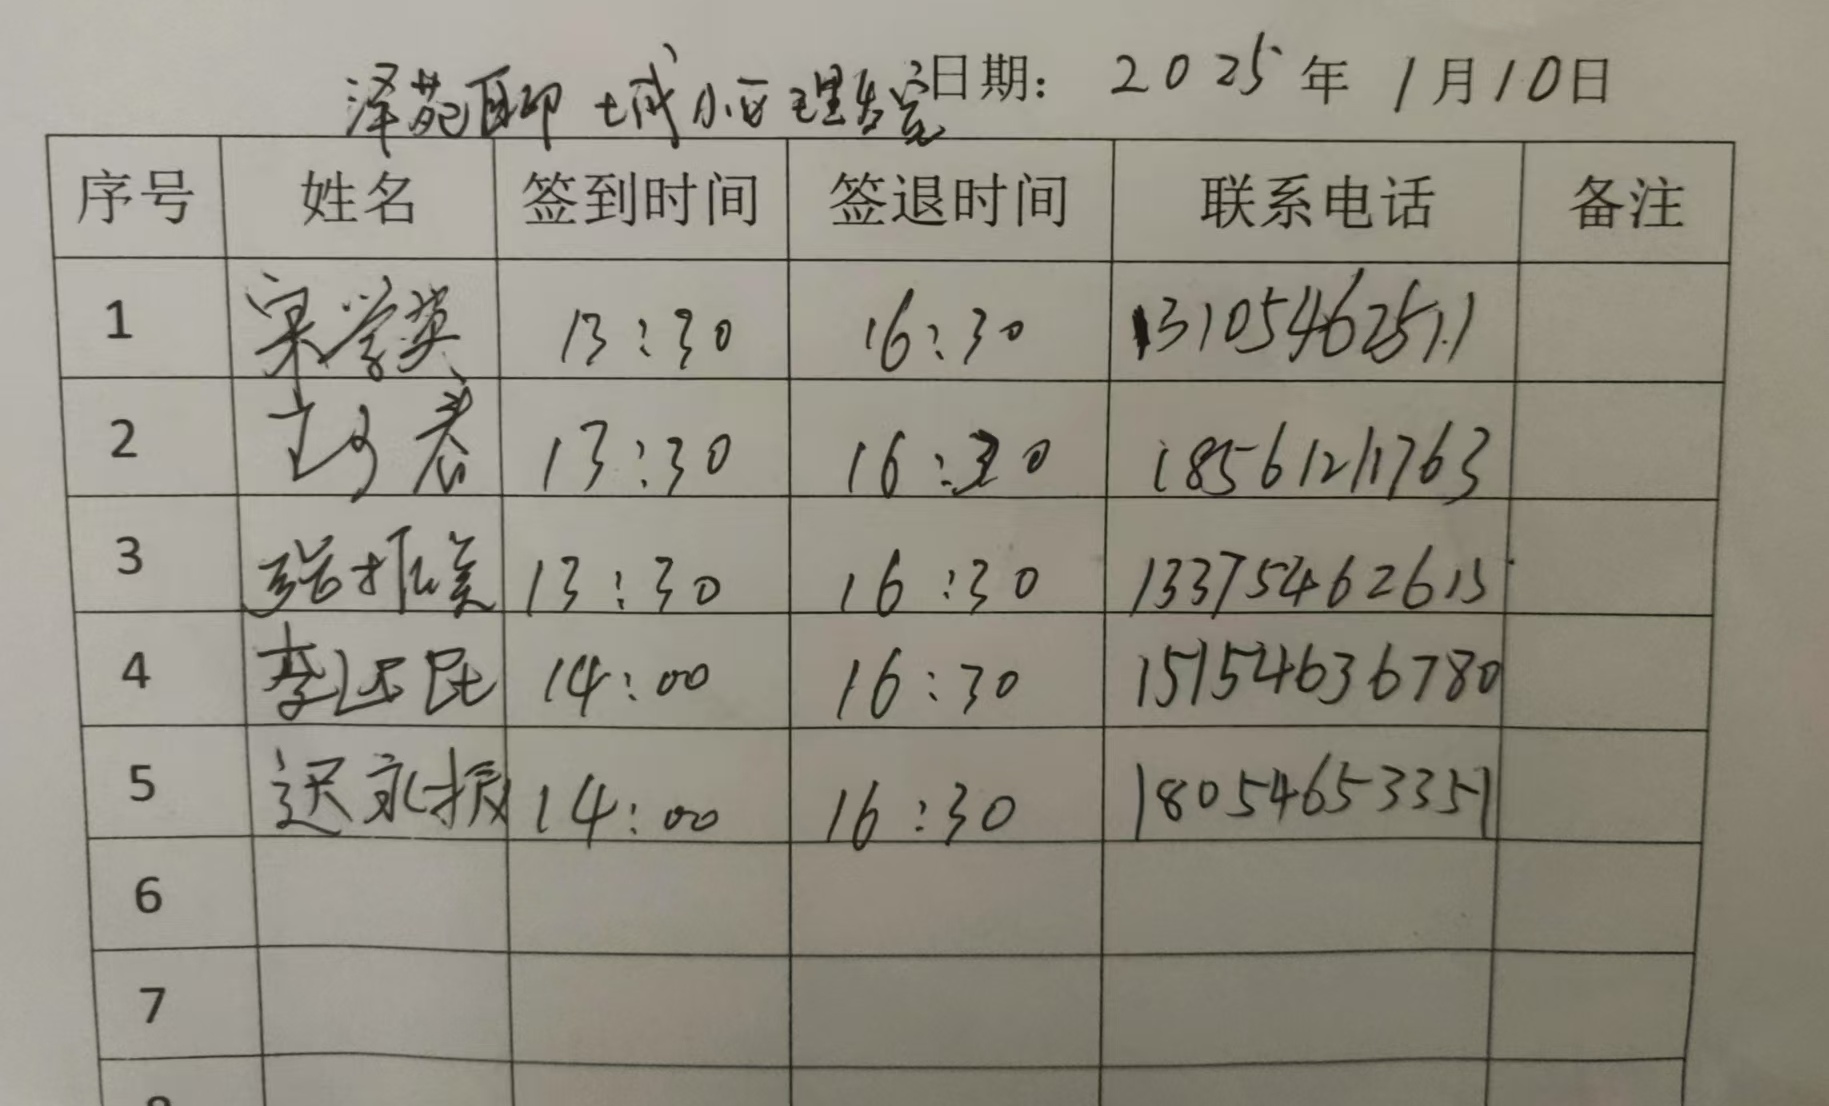 日期: 2025年1月10日
泽苑聊城小区理发
序号 姓名 签到时间 签退时间 联系电话 备注
1 宋学英 13:30 16:30 13105462511
2 13:30 16:30 18561211763
3 13:30 16:30 13375462615
4 李延民 14:00 16:30 15154636780
5 迟永振 14:00 16:30 18054653351
6
7
8